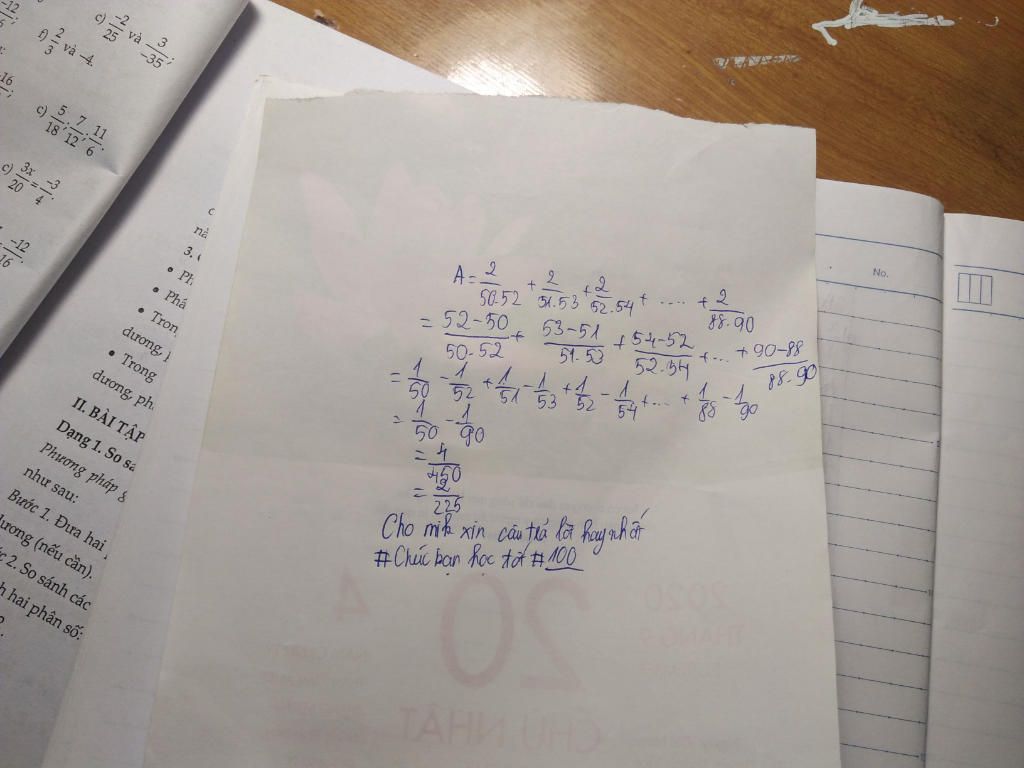 c) -2/25 và 3/-35;
f) 2/3 và -4.
c) 5/18; 7/12; 11/6.
c) 3x/20 = -3/4.
-12/16.
II. BÀI TẬP
Dạng 1. So sá
Phương pháp g
như sau:
Bước 1. Đưa hai
dương (nếu cần).
2. So sánh các
h hai phân số:
• Trong
dương, ph
No.
A = 2/50.52 + 2/51.53 + 2/52.54 + .... + 2/88.90
= 52-50/50.52 + 53-51/51.53 + 54-52/52.54 + ... + 90-88/88.90
= 1/50 - 1/52 + 1/51 - 1/53 + 1/52 - 1/54 + ... + 1/88 - 1/90
= 1/50 - 1/90
= 4/450
= 2/225
Cho mik xin câu trả lời hay nhất
#Chúc bạn học tốt #100
20
4
2020
CHỦ NHẬT